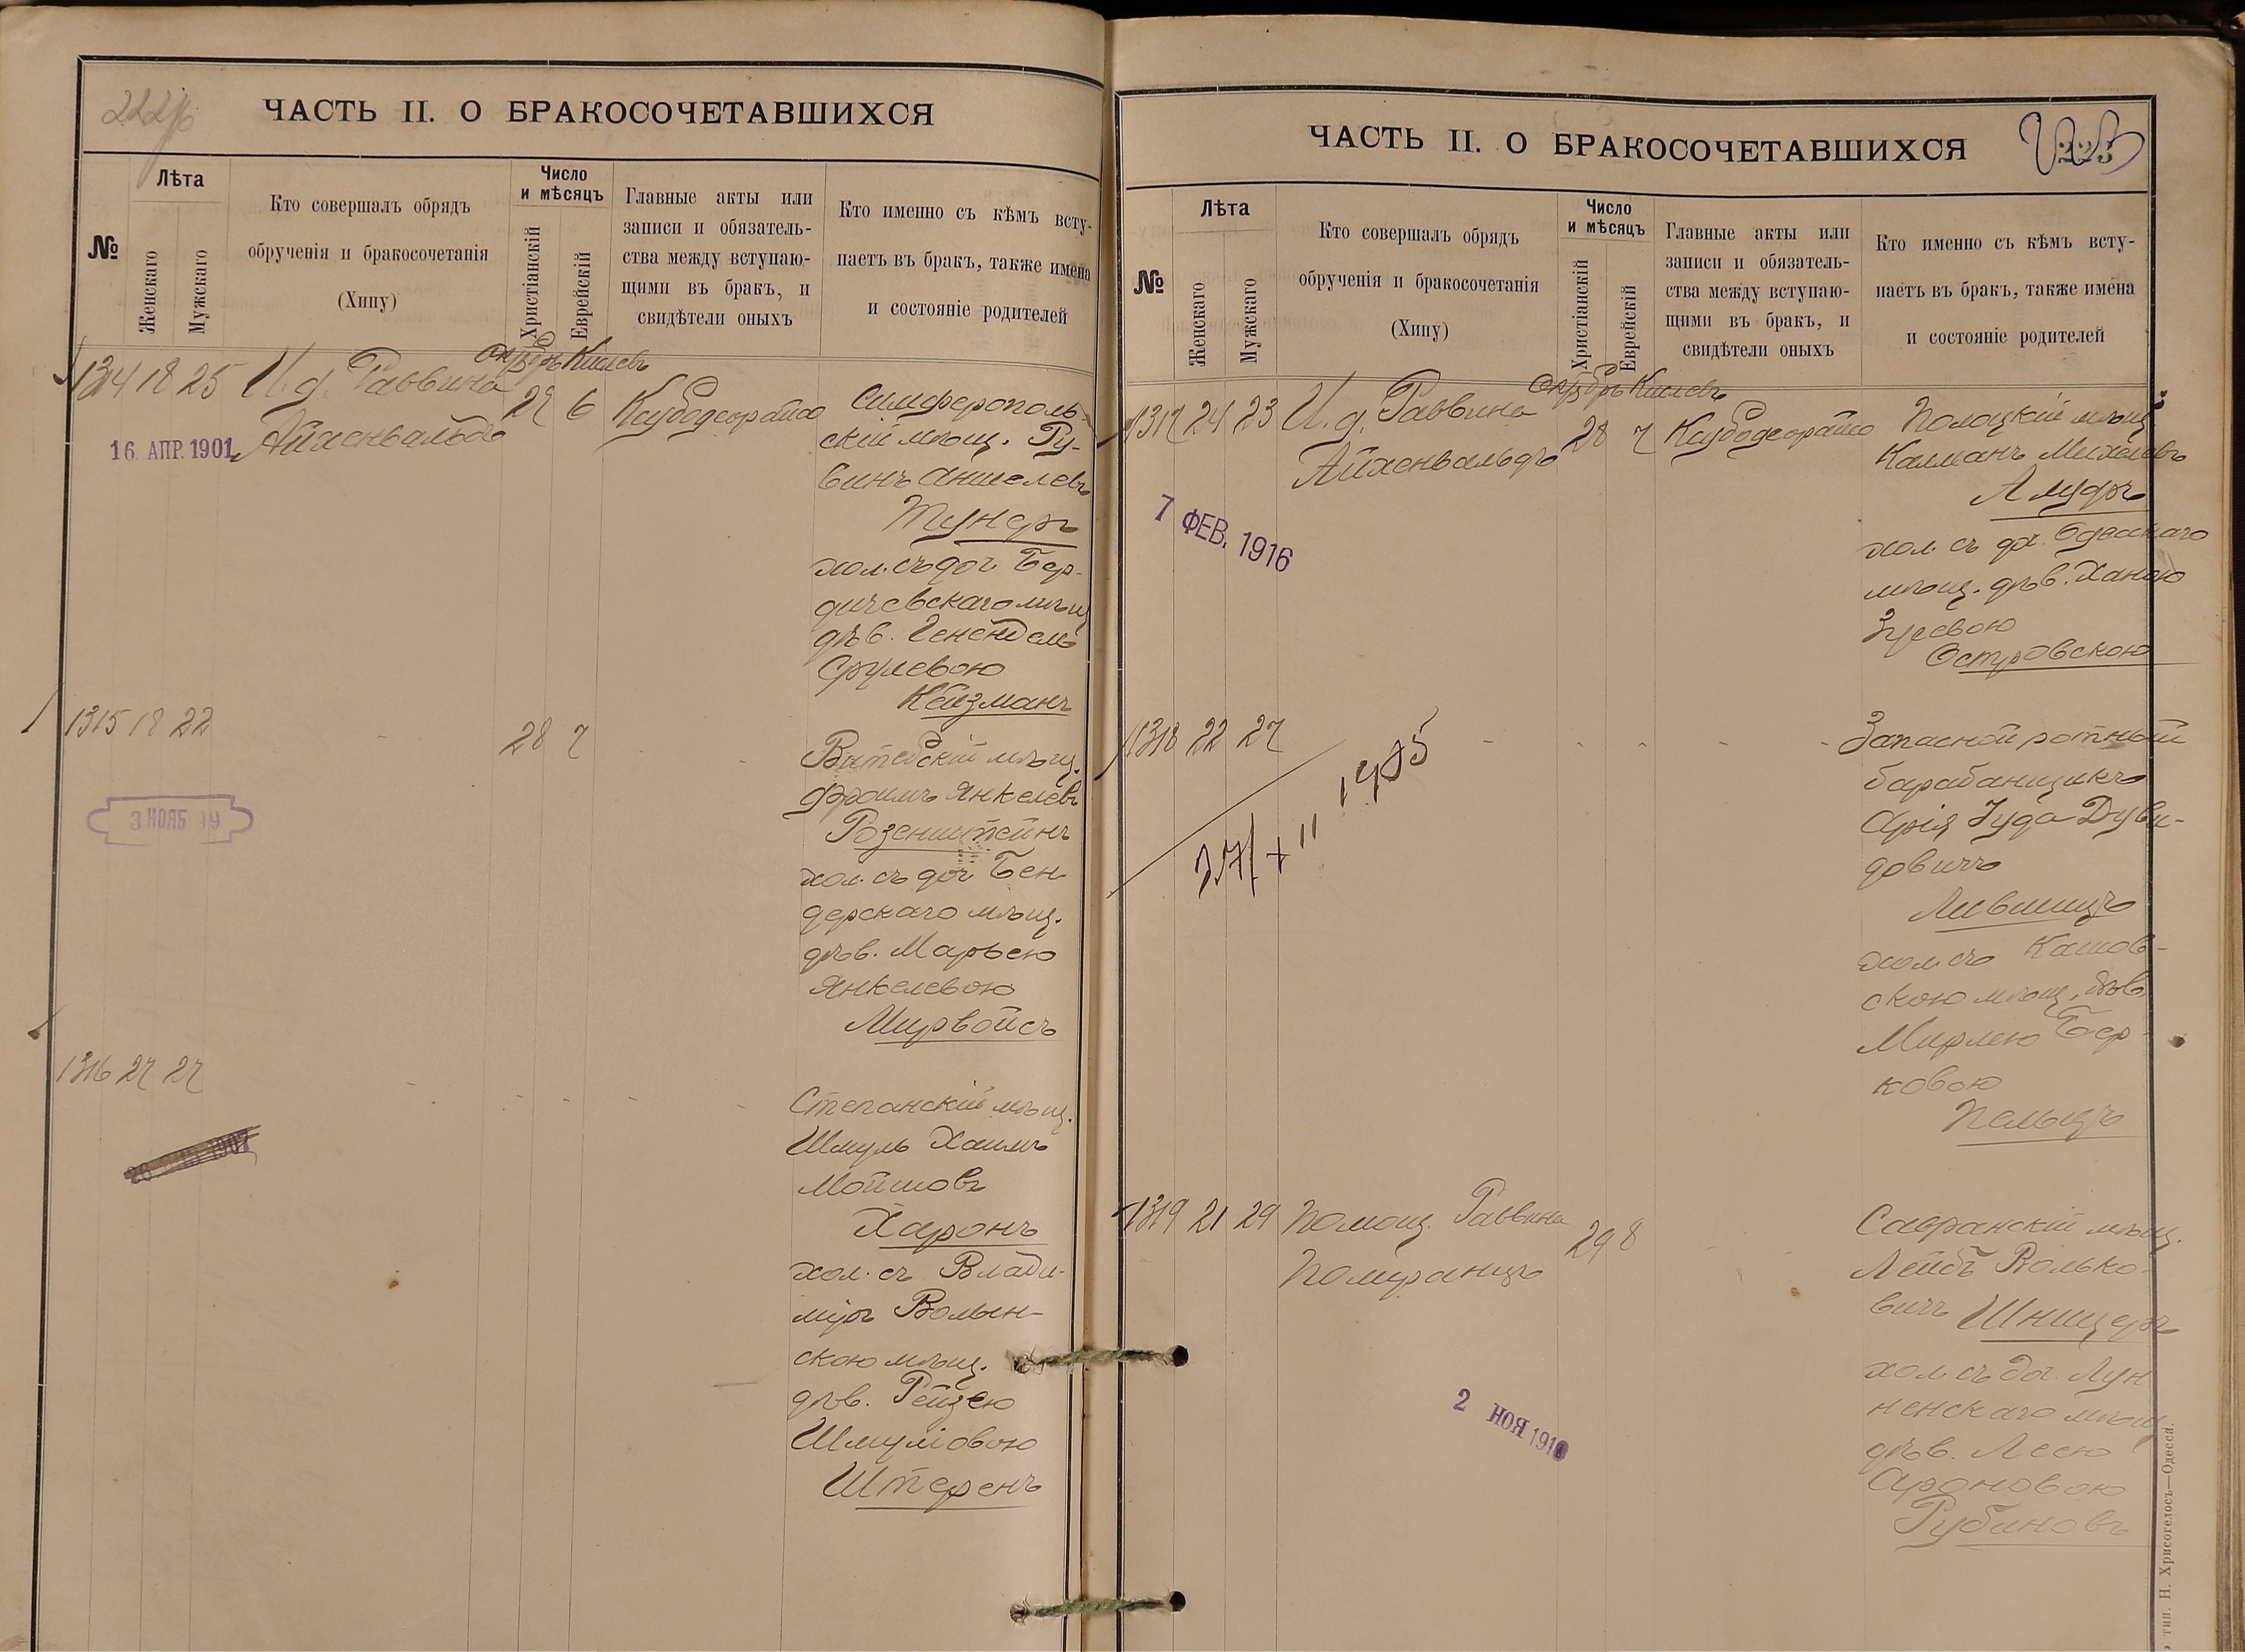 ЧАСТЬ II. О БРАКОСОЧЕТАВШИХСЯ
№
Лѣта
Женскаго
Мужскаго
Кто совершалъ обрядъ
обрученія и бракосочетанія
(Хипу)
Число
и мѣсяцъ
Христіанскій
Еврейскій
Главные акты или
записи и обязатель-
ства между вступаю-
щими въ бракъ, и
свидѣтели оныхъ
Кто именно съ кѣмъ всту-
паетъ въ бракъ, также имена
и состояніе родителей
1314 18 25 И. д. Раввина
Айхенвальдъ
Октябрь Кислевъ
27 6 Кубодеорайсо
16. АПР. 1901
Симферополь-
скій мѣщ. Ру-
винъ Аншелевъ
Тунеръ
хол. съ доч. Бер-
дичевскаго мѣщ
дѣв. Генендель
Срулевою
Кейзманъ
1315 18 22
28 7
3 НОЯБ 99
Витебскій мѣщ.
Фроимъ Янкелевъ
Розенштейнъ
хол. съ доч Бен-
дерскаго мѣщ.
дѣв. Марьею
Янкелевою
Мирвойсъ
1316 27 27
Степанскій мѣщ.
Шмуль Хаимъ
Мойшовъ
Харонъ
хол. съ Влади-
міръ Волын-
скою мѣщ.
дѣв. Рейзею
Шмуліовою
Штеренъ
ЧАСТЬ II. О БРАКОСОЧЕТАВШИХСЯ
223
№
Лѣта
Женскаго
Мужскаго
Кто совершалъ обрядъ
обрученія и бракосочетанія
(Хипу)
Число
и мѣсяцъ
Христіанскій
Еврейскій
Главные акты или
записи и обязатель-
ства между вступаю-
щими въ бракъ, и
свидѣтели оныхъ
Кто именно съ кѣмъ всту-
паетъ въ бракъ, также имена
и состояніе родителей
1317 24 23 И. д. Раввина
Айхенвальдъ
Октябрь Кислевъ
28 7 Кубодеорайсо
7 ФЕВ. 1916
Полоцкій мѣщ
Калманъ Михелевъ
Амудъ
хол. съ доч. Одесскаго
мѣщ. дѣв. Ханою
Зусевою
Островскою
1318 22 27
1905
Запасной ротный
барабанщикъ
Арія Іуда Дуви-
довичъ
Лившицъ
хол. съ
скою мѣщ. дѣв.
Мирлею Бер-
ковою
1319 21 29 Помощ. Раввина
Померанцъ
29 8
2 НОЯ 191
Савранскій мѣщ.
Лейбъ Волько-
вичъ Шницеръ
хол. съ доч. Лун
ненскаго мѣщ
дѣв. Леею
Ароновою
Рубиновъ
тип. Н. Хрисогелосъ—Одесса.